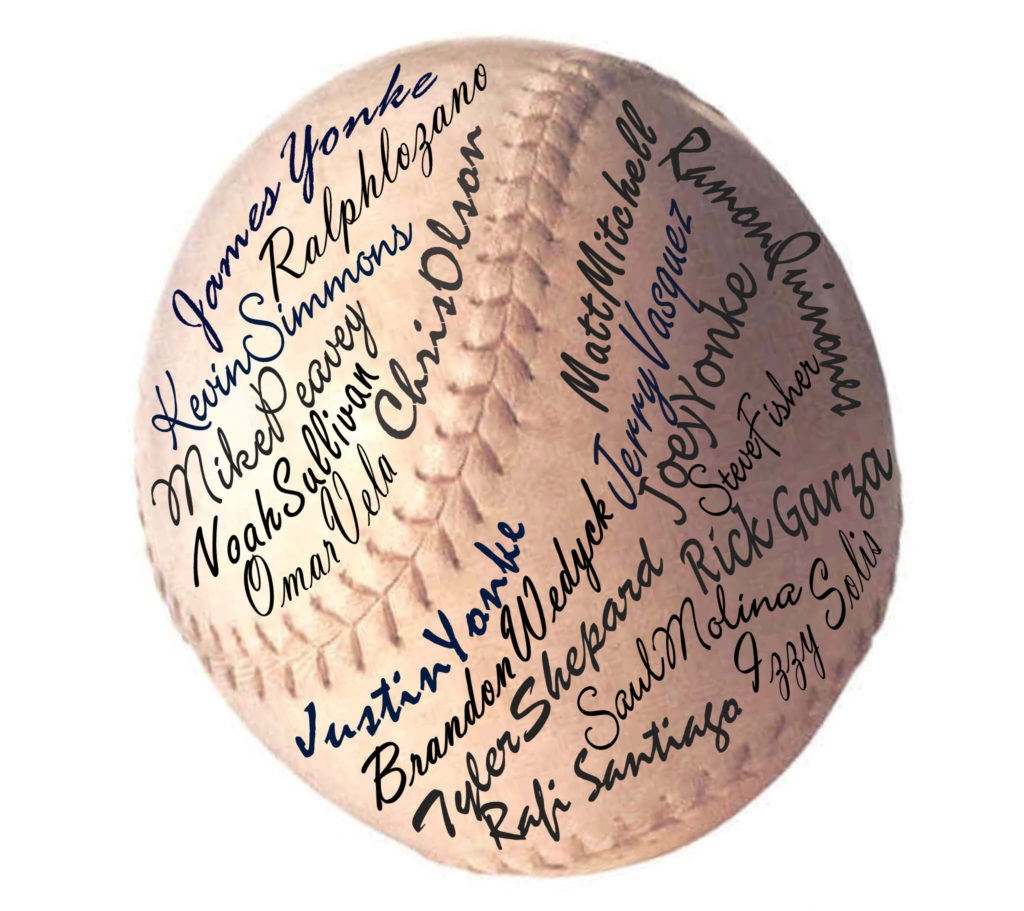 James Yonke
Ralphlozano
KevinSimmons
MikePeavey
NoahSullivan
OmarVela
ChrisOlson
MattMitchell
RamonQuinones
JerryVasquez
JoeyYonke
SteveFisher
Rick Garza
JustinYonke
BrandonWedyck
TylerShepard
SaulMolina
Izzy Solis
Rafi Santiago